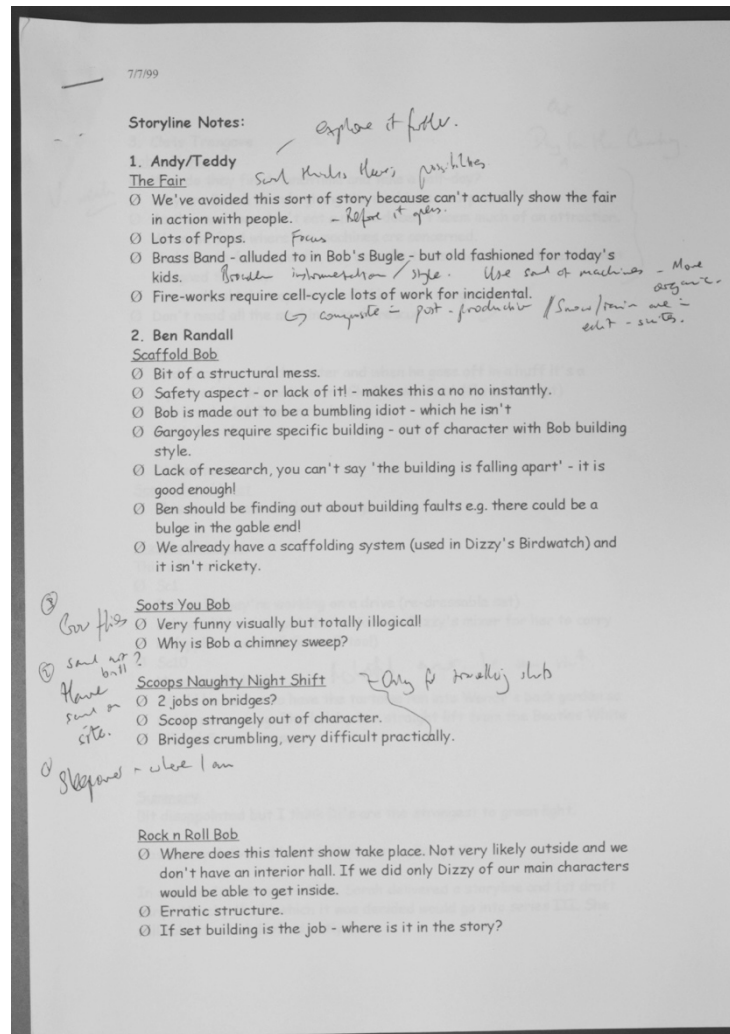 7/7/99
Storyline Notes:
explore it further.
1. Andy/Teddy
possibilities
The Fair
Ø We've avoided this sort of story because can't actually show the fair
in action with people. - Before it opens.
Ø Lots of Props. Focus
Ø Brass Band - alluded to in Bob's Bugle - but old fashioned for today's
kids. Broaden instrumentation / style. Use sound of machines - More
organic.
Ø Fire-works require cell-cycle lots of work for incidental.
composite in post-production // Snow/rain are in
edit-suites.
2. Ben Randall
Scaffold Bob
Ø Bit of a structural mess.
Ø Safety aspect - or lack of it! - makes this a no no instantly.
Ø Bob is made out to be a bumbling idiot - which he isn't
Ø Gargoyles require specific building - out of character with Bob building
style.
Ø Lack of research, you can't say 'the building is falling apart' - it is
good enough!
Ø Ben should be finding out about building faults e.g. there could be a
bulge in the gable end!
Ø We already have a scaffolding system (used in Dizzy's Birdwatch) and
it isn't rickety.
Soots You Bob
Ø Very funny visually but totally illogical!
Ø Why is Bob a chimney sweep?
Have
on
site.
Scoops Naughty Night Shift - Only for travelling shots
Ø 2 jobs on bridges?
Ø Scoop strangely out of character.
Ø Bridges crumbling, very difficult practically.
Sleepover - where I am
Rock n Roll Bob
Ø Where does this talent show take place. Not very likely outside and we
don't have an interior hall. If we did only Dizzy of our main characters
would be able to get inside.
Ø Erratic structure.
Ø If set building is the job - where is it in the story?